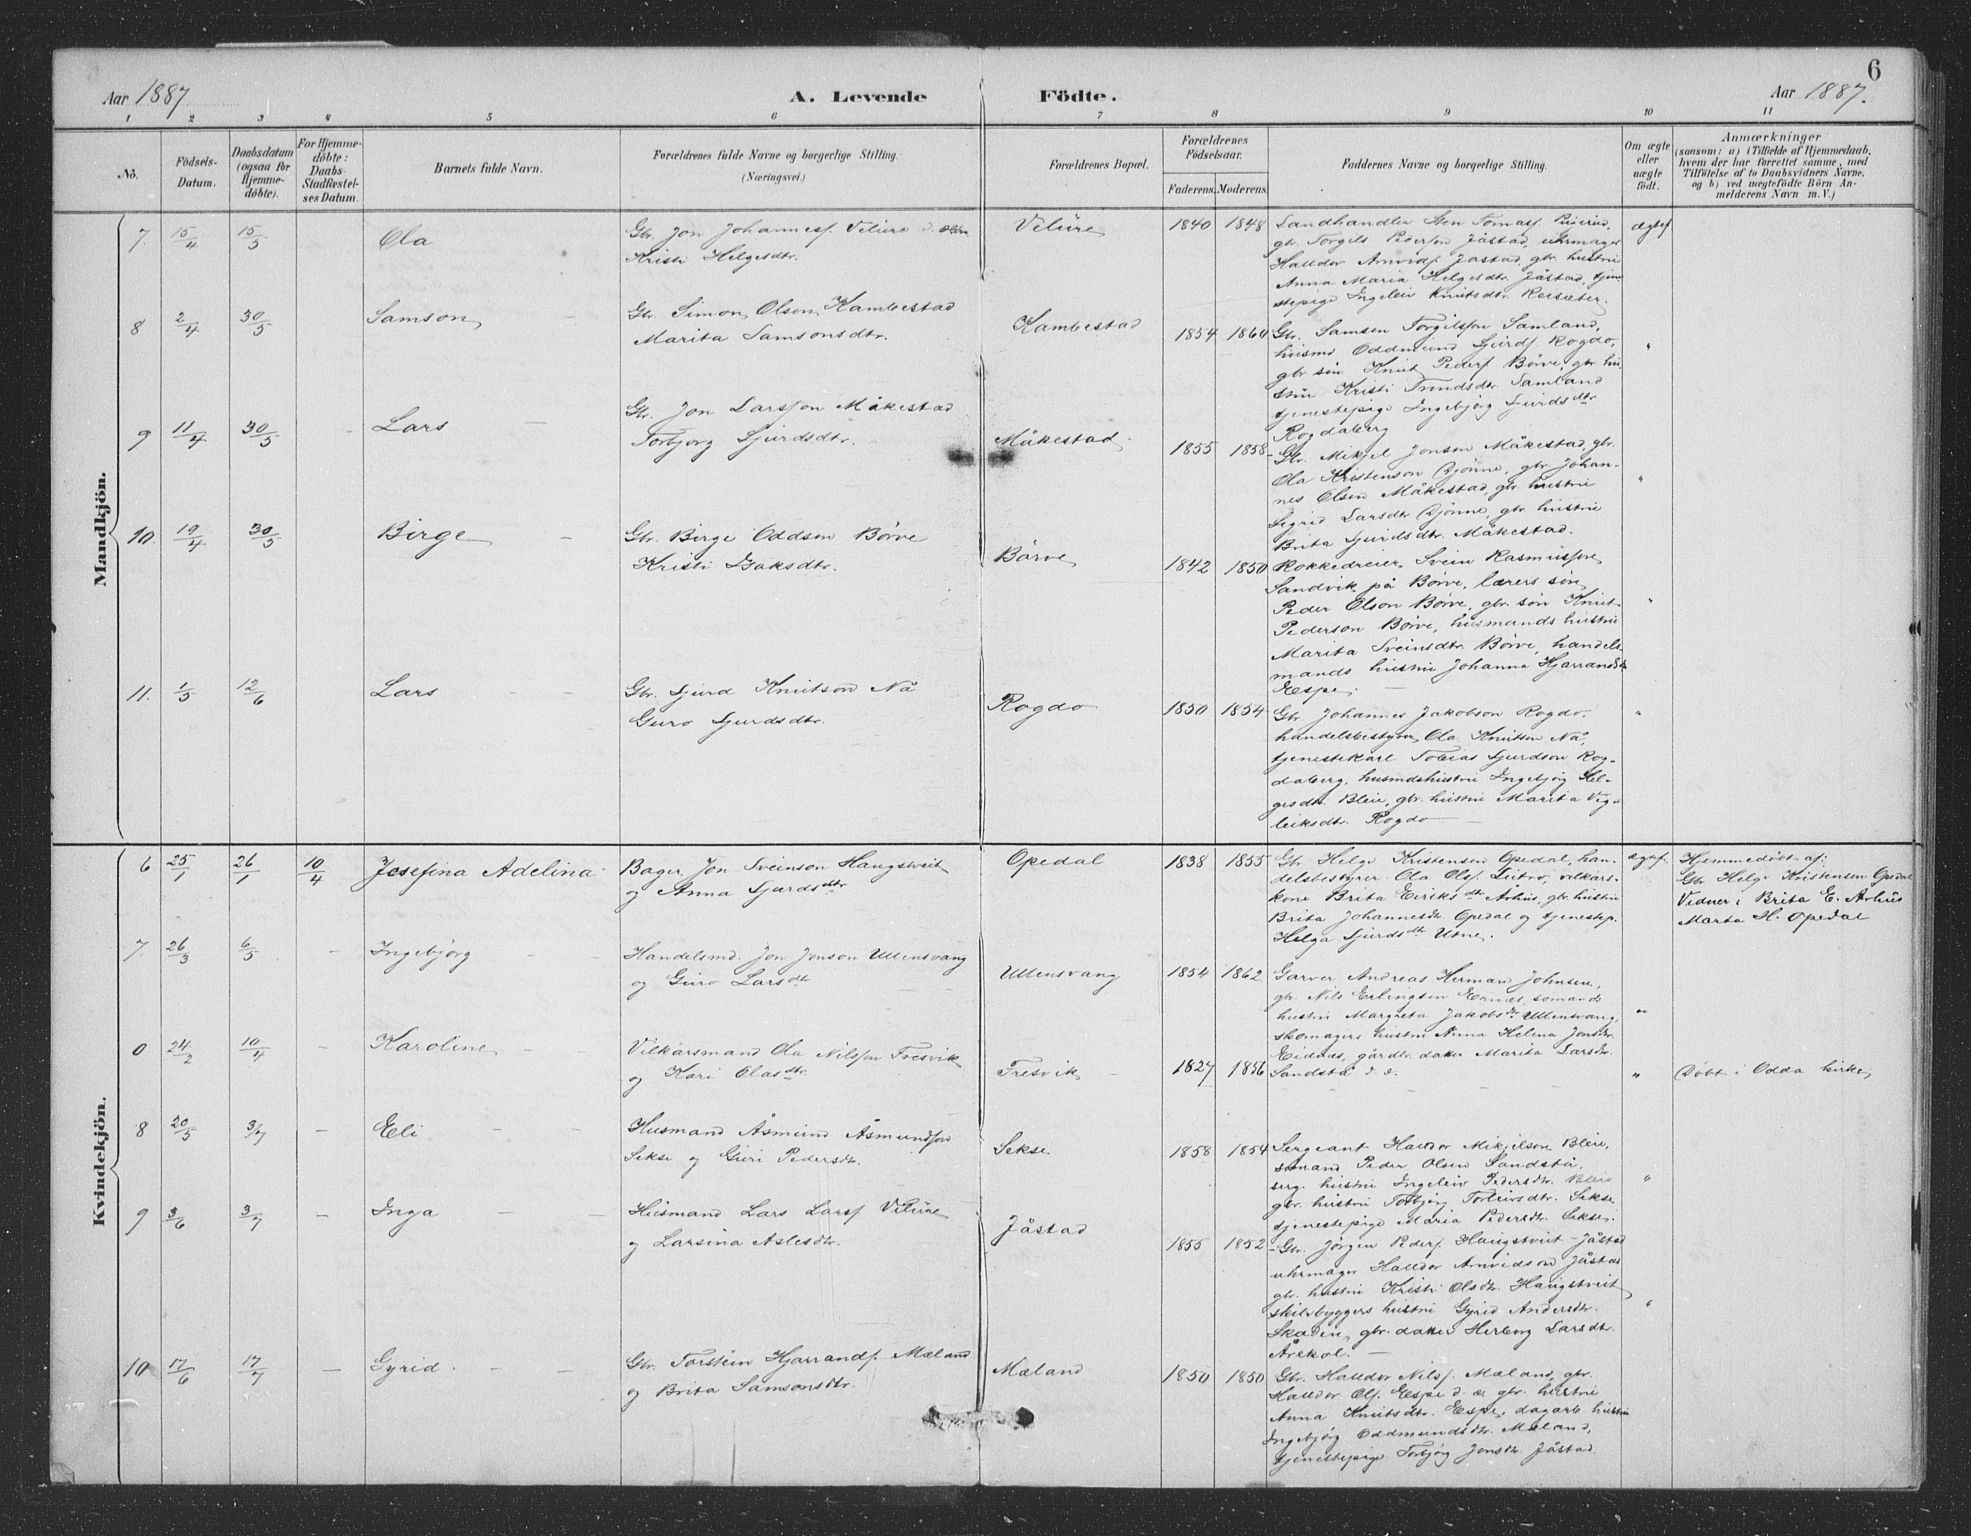 6
Aar 1887.
A. Levende Födte.
Aar 1887.
1 2 3 4 5 6 7 8 9 10 11
No.
Födsels-Datum.
Daabsdatum (ogsaa for Hjemmedöbte).
For Hjemmedöbte: Daabs-Stadfæstelses Datum.
Barnets fulde Navn.
Forældrenes fulde Navne og borgerlige Stilling. (Næringsvei.)
Forældrenes Bopæl.
Forældrenes Födselsaar.
Faderens. Moderens.
Faddernes Navne og borgerlige Stilling.
Om ægte eller uægte födt.
Anmærkninger
(saasom: a) i Tilfælde af Hjemmedaab,
hvem der har forrettet samme, med
Tilföielse af to Daabsvidners Navne,
og b) ved uægtefödte Börn An-
melderens Navn m. V.)
Mandkjön.
7. 15/4 15/5 Ola
Gbr. Jon Johannesf. Velure
Kristi Helgesdtr.
Velure 1840 1848
Landhandler Sten Tomasf.
gbr. Torgils Pederson Jåstad, uhrmager
Halldor Arnvidf. Jåstad, gbr. hustrie
Anna Maria Helgesdtr. Jåstad, tjene
stepige Ingeleiv Knutsdtr. Reisæter.
ægtef
8 2/4 30/5 Samson
Gbr. Simon Olson Kambestad
Marita Samsonsdtr.
Kambestad 1854 1860
Gbr. Samson Torgilsson Samland,
husmd Oddmund Sjurdf. Rogdo,
gbr. sön Knut Pederf. Börve, gbr. hu
strie Kristi Samland
tjenestepige Ingebjörg Sjurdsdtr
Rogdaberg
"
9 11/4 30/5 Lars
Gbr. Jon Larsson Måkestad
Torbjorg Sjurdsdtr.
Måkestad 1855 1858
Gbr. Mikjel Jonson Måkestad, gbr.
Ola Kristenson Djönne, gbr Johan-
nes Olson Måkestad, gbr. hustrie
Sigrid Larsdtr Djönne, gbr. hustrie
Brita Sjurdsdtr. Måkestad.
"
10. 19/4 30/5 Birge
Gbr. Birge Oddson Börve
Kristi Isaksdtr.
Börve 1842 1850
Rokkedreier Svein Rasmussen
Sandvik på Börve, lærers sön
Peder Olson Börve, gbr. sön Knut
Pederson Börve, husmands hustrie
Marita Sveinsdtr. Börve, handels
mands hustrie Johanna Hjarrandsdtr
Espe.
"
11. 1/5 12/6 Lars
Gbr. Sjurd Knutson Nå
Guro Sjurdsdtr.
Rogdo 1850 1854
Gbr. Johannes Jakobson Rogdo,
handelsbestyrer Ola Knutson Nå,
tjenestekarl Tobias Sjurdson Rog-
daberg, husmdshustrie Ingebjörg Hel-
gesdtr. Bleie, gbr. hustrie Marita Vig-
leiksdtr. Rogdo
"
Kvindekjön.
6 25/1 26/1 10/4 Josefina Adelina
Bager Jon Sveinson Haugstveit
og Anna Sjurdsdtr
Opedal 1838 1855
Gbr. Helge Kristensen Opedal, han-
delsbestyrer Ola Olsf. vilkårs-
kone Brita Eiriksdtr Århus, gbr. hustrie
Brita Johannesdtr. Opedal og tjenestep.
Helga Sjurdsdtr Utne.
ægtef.
Hjemmedöbt af:
Gbr. Helge Kristensen Opedal
Vidner: Brita E. Århus
Marta H. Opedal
7. 26/3 6/5 - Ingebjörg
Handelsmd. Jon Jonson Ullensvang
og Guro Larsdtr
Ullensvang 1854 1862
Garver Andreas Herman Johnsen,
gbr. Nils Erlingsen somands
hustrie Margreta Jakobsdtr Ullensvang,
skomagers hustrie Anna Helena Jonsdtr.
Eidnes, gårdbr. datter Marita Larsdtr.
Sandstå
"
0 24/2 10/4 - Karoline
Vilkårsmand Ola Nilsson Fresvik
og Kari Olasdtr.
Fresvik 1827 1856
d. d.
"
Döbt i Odda kirke
8 20/5 3/7 - Eli
Husmand Åsmund Åsmundson
Sekse og Guri Pedersdtr.
Sekse 1858 1854
Sergeant Halldor Mikjelson Bleie,
sömand Peder Olsen Sandstå,
serg. hustrie Ingeleiv Pedersdtr. Bleie
gbr. hustrie Torbjörg Torleivsdtr. Sekse
tjenestepige Maria Pedersdtr. Sekse.
"
9 3/6 3/7 - Inga
Husmand Lars Larsf. Velure
og Larsina Aslesdtr.
Jåstad 1855 1852
Gbr. Jörgen Pederf. Haugstveit - Jåstad
uhrmager Halldor Arnvidson Jåstad
gbr. hustrie Kristi Olsdtr. Haugstveit
skibsbyggers hustrie Gyrid Andersdtr.
Skaden, gbr. datter Herborg Larsdtr.
Årekol.
"
10 17/6 17/7 - Gyrid
Gbr. Torstein Hjarrandf. Mæland
og Brita Samsonsdtr.
Mæland 1850 1850
Gbr. Halldor Nilsf. Mæland, gbr.
Halldor Olf. Espe d. æ. gbr. hustrie
Anna Knutsdtr. Espe, dagarb. hustrie
Ingebjörg Oddmundsdtr. Mæland,
tjenestepige Torbjörg Jonsdtr. Jåstad.